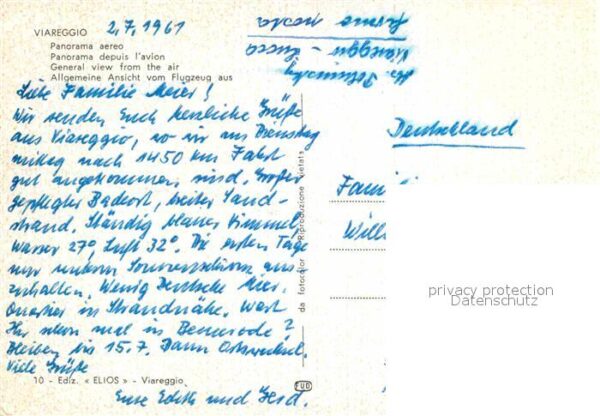 VIAREGGIO 2.7.1961
Panorama aereo
Panorama depuis l'avion
General view from the air
Allgemeine Ansicht vom Flugzeug aus
Liebe Familie Meier!
Wir senden Euch herzliche Grüße
aus Viareggio, wo wir am Dienstag
mittag nach 1450 km Fahrt
gut angekommen sind. Großer
gepflegter Badeort, breiter Sand-
strand. Ständig blauer Himmel,
Wasser 27°, Luft 32°. Die ersten Tage
nur unterm Sonnenschirm aus-
zuhalten. Wenig Deutsche hier.
Quartier in Strandnähe. Wart
Ihr schon mal in Bemerode?
Bleiben bis 15.7. Dann Ortswechsel.
Viele Grüße
Eure Edith und Gerd.
10 - Ediz. « ELIOS » - Viareggio
da fotocolor - Riproduzione vietata
Viareggio - Lucca
Deutschland
Fami
Will
privacy protection
Datenschutz